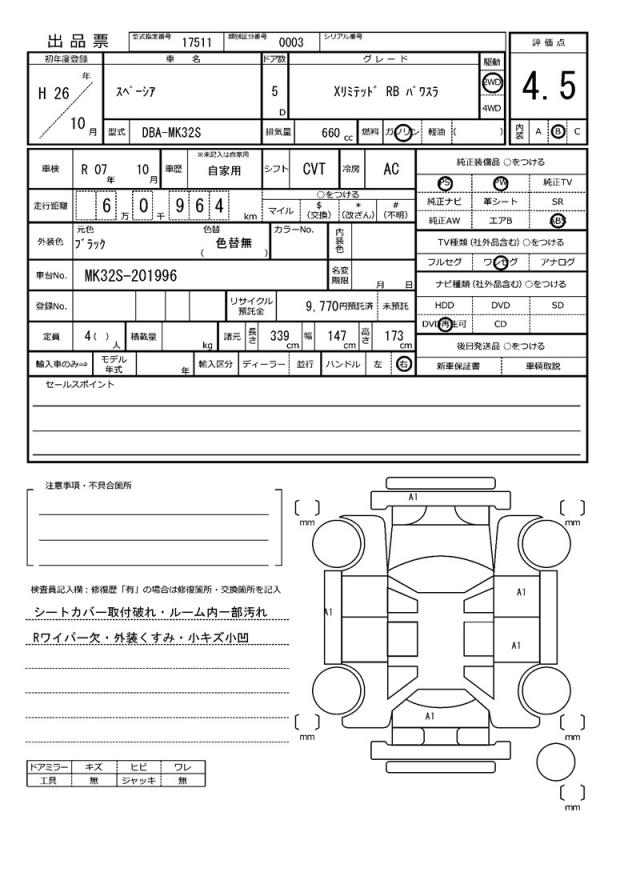 出品票 型式指定番号 17511 類別区分番号 0003 シリアル番号
評価点
4.5
内装 A B C
初年度登録 車名 ドア数 グレード 駆動
H 26 年 10 月 スペーシア 5 D Xリミテッド RB パワスラ 2WD 4WD
型式 DBA-MK32S 排気量 660 cc 燃料 ガソリン 軽油 ( )
車検 R 07 年 10 月 車歴 ※未記入は自家用 自家用 シフト CVT 冷房 AC
走行距離 6 万 0 千 9 6 4 km ○をつける マイル $ (交換) * (改ざん) # (不明)
外装色 元色 ブラック 色替 ( 色替無 ) カラーNo. 内装色
車台No. MK32S-201996 名変期限 月 日
登録No. リサイクル預託金 9,770円預託済 未預託
定員 4( ) 人 積載量 kg 諸元 長さ 339 cm 幅 147 cm 高さ 173 cm
輸入車のみ⇒ モデル年式 年 輸入区分 ディーラー 並行 ハンドル 左 右
純正装備品 ○をつける
PS PW 純正TV
純正ナビ 革シート SR
純正AW エアB ABS
TV種類 (社外品含む) ○をつける
フルセグ ワンセグ アナログ
ナビ種類 (社外品含む) ○をつける
HDD DVD SD
DVD再生可 CD
後日発送品 ○をつける
新車保証書 車輌取説
セールスポイント
注意事項・不具合箇所
検査員記入欄：修復歴「有」の場合は修復箇所・交換箇所を記入
シートカバー取付破れ・ルーム内一部汚れ
Rワイパー欠・外装くすみ・小キズ小凹
ドアミラー キズ ヒビ ワレ
工具 無 ジャッキ 無
A1
mm
mm
A1
A1
A1
A1
mm
mm
mm